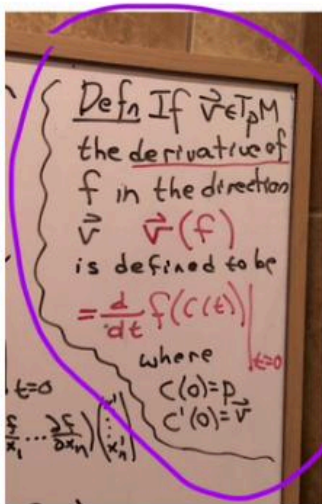 Defn If v⃗ ∈ TₚM
the derivative of
f in the direction
v⃗ v⃗(f)
is defined to be
= d/dt f(c(t))|t=0
where
c(0)=p
c'(0)=v⃗
t=0
∂f/∂xn
x'n